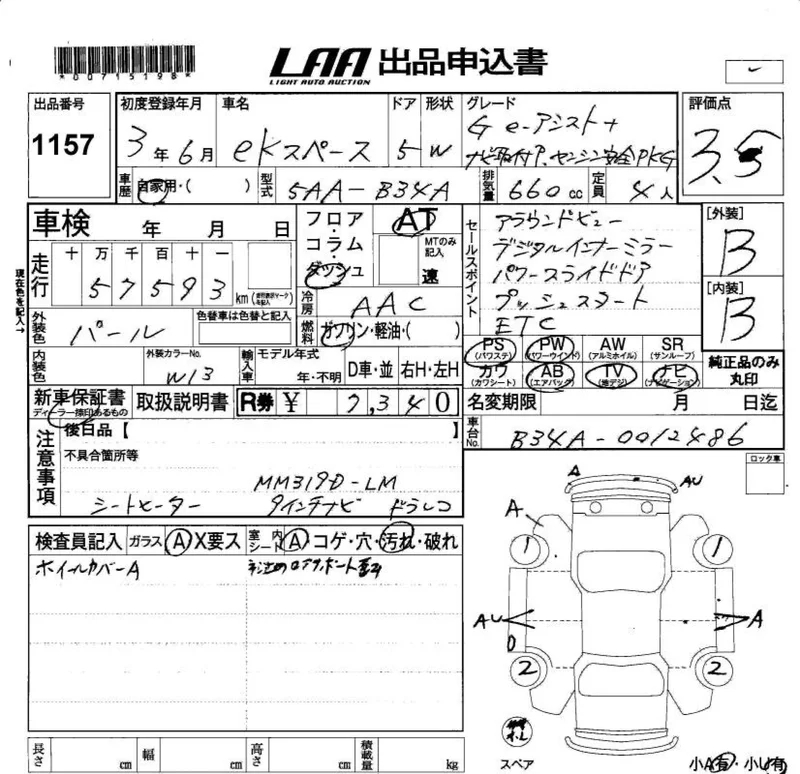 *00715198*
LAA 出品申込書
LIGHT AUTO AUCTION
出品番号
1157
初度登録年月
3年6月
車名
eKスペース
ドア
5
形状
W
グレード
G e-アシスト+
ナビ取付P、センシン安全PKG
評価点
3.5
車歴
自家用・( )
型式
5AA-B34A
排気量
660cc
定員
4人
車検 年 月 日
フロア・コラム・ダッシュ
AT
MTのみ記入
速
セールスポイント
アラウンドビュー
デジタルインナーミラー
パワースライドドア
プッシュスタート
ETC
[外装]
B
[内装]
B
現在色を記入→
走行
十 万 千 百 十 一
57593km
冷房
AAC
外装色
パール
色替車は色替と記入
燃料
ガソリン・軽油・( )
PS (パワステ)
PW (パワーウインド)
AW (アルミホイル)
SR (サンルーフ)
カワ (カワシート)
AB (エアバック)
TV (地デジ)
ナビ (ナビゲーション)
純正品のみ丸印
内装色
外装カラーNo.
W13
輸入車
モデル年式
年・不明
D車・並
右H・左H
新車保証書
ディーラー捺印あるもの
取扱説明書
R券 ¥ 7,340
名変期限 月 日迄
注意事項
後日品【 】
車台No.
B34A-0012486
不具合箇所等
MM319D-LM
シートヒーター 9インチナビ ドラレコ
ロック車
検査員記入
ガラス A X要ス
室内シート A コゲ・穴・汚れ・破れ
ホイルカバーA
A
AU
A
1
1
AU
A
2
2
スペア
小A有・小U有
長さ cm
幅 cm
高さ cm
積載量 kg